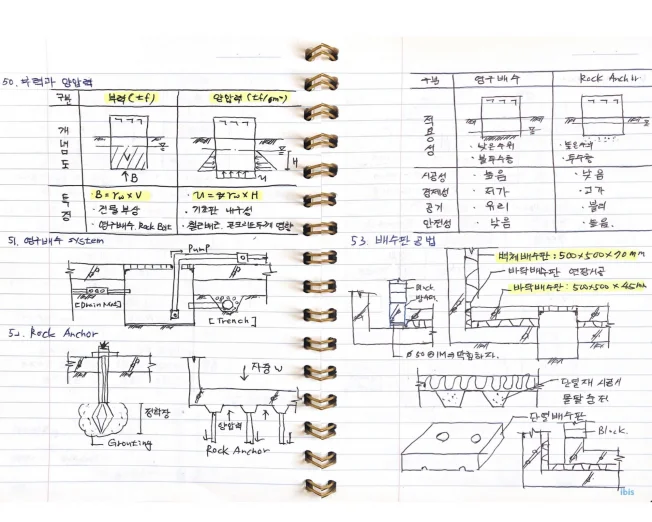 50. 부력과 양압력
구분 부력 (tf) 양압력 (tf/m²)
개념도
B
H
u
특징
· B = γw × V
· u = γw × H
· 건물부상
· 기초판 내구성
· 영구배수, Rock Bolt
51. 영구배수 system
Pump
[Drain Mat]
[Trench]
52. Rock Anchor
정착장
Grouting
자중 W
양압력
Rock Anchor
구분 영구배수 Rock Anchor
적용성
· 낮은수위 · 높은수위
· 불투수층 · 투수층
시공성 · 높음 · 낮음
경제성 · 저가 · 고가
공기 · 유리 · 불리
안전성 · 낮음 · 높음.
53. 배수판 공법
벽체배수판 : 500×500×70mm
바닥배수판 연장시공
바닥배수판 : 500×500×45mm
Block
방수
단열재 시공시
몰탈 충전
단열배수판
Block.
ibis